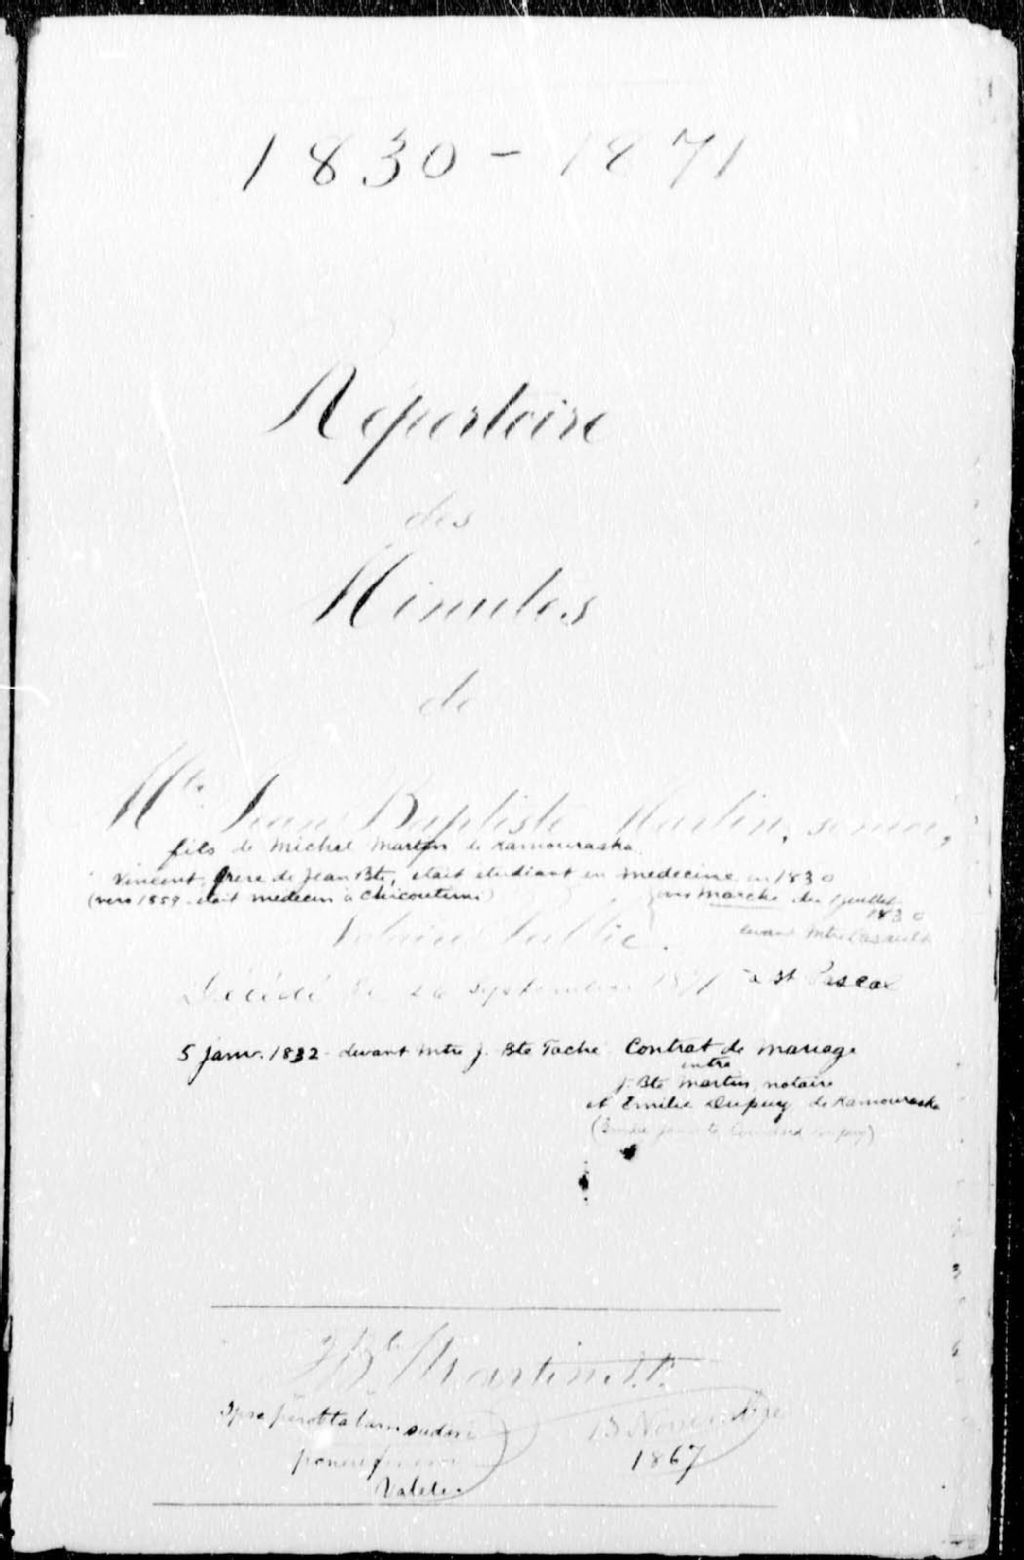 1830 - 1871
Répertoire
des
Minutes
de
Mtre Jean Baptiste Martin, senior,
fils de Michel Martin de Kamouraska
Vincent, frère de Jean Bte, était étudiant en médecine en 1830
(vers 1859 était médecin à Chicoutimi)
marché du 1 juillet
1830
devant Mtre Casault
Notaire Public.
Décédé le 26 septembre 1871 à St Pascal
5 Janv. 1832 - devant Mtre J. Bte Taché Contrat de mariage
entre
J. Bte Martin, notaire
et Emilie Dupuy de Kamouraska
J Bte Martin N.P.
13 Novembre
1867
Valete.